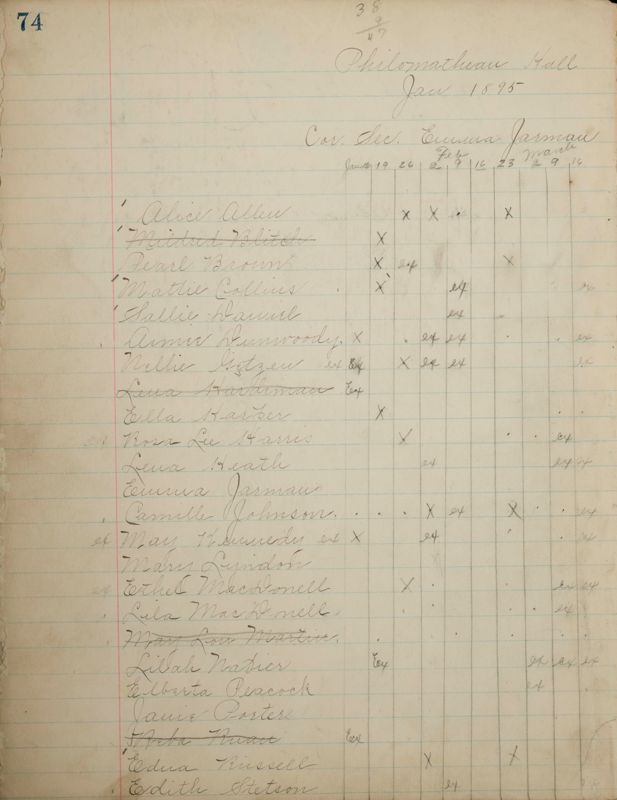 74
38
9
47
Philomathean Hall
Jan 1895
Cor. Sec. Emma Jarman
Feb March
19 26 2 9 16 23 2 9 16
Alice Allen x x . x
Mildred Blitch x
Pearl Brown x ex x
Mattie Collins . x ex
Sallie Daniel ex
Dunwoody. x . ex ex ex
Nellie ex Ex x ex ex ex
Lena Hardeman Ex
Ella Harper x . .
ex Rosa Lee Harris x . . ex
Lena Heath ex ex ex
Emma Jarman
Camille Johnson. . . . x ex x . . ex
ex May Kennedy ex x ex . ex
Mary Lyndon
Ethel MacDonell x . . ex ex
. Lila MacDonell. . . . . ex
May Lou Martin. . . . . . .
Lillah Napier Ex ex ex ex
Elberta Peacock ex
Janie Porter
Ex
Edna Russell x x
Edith Stetson ex